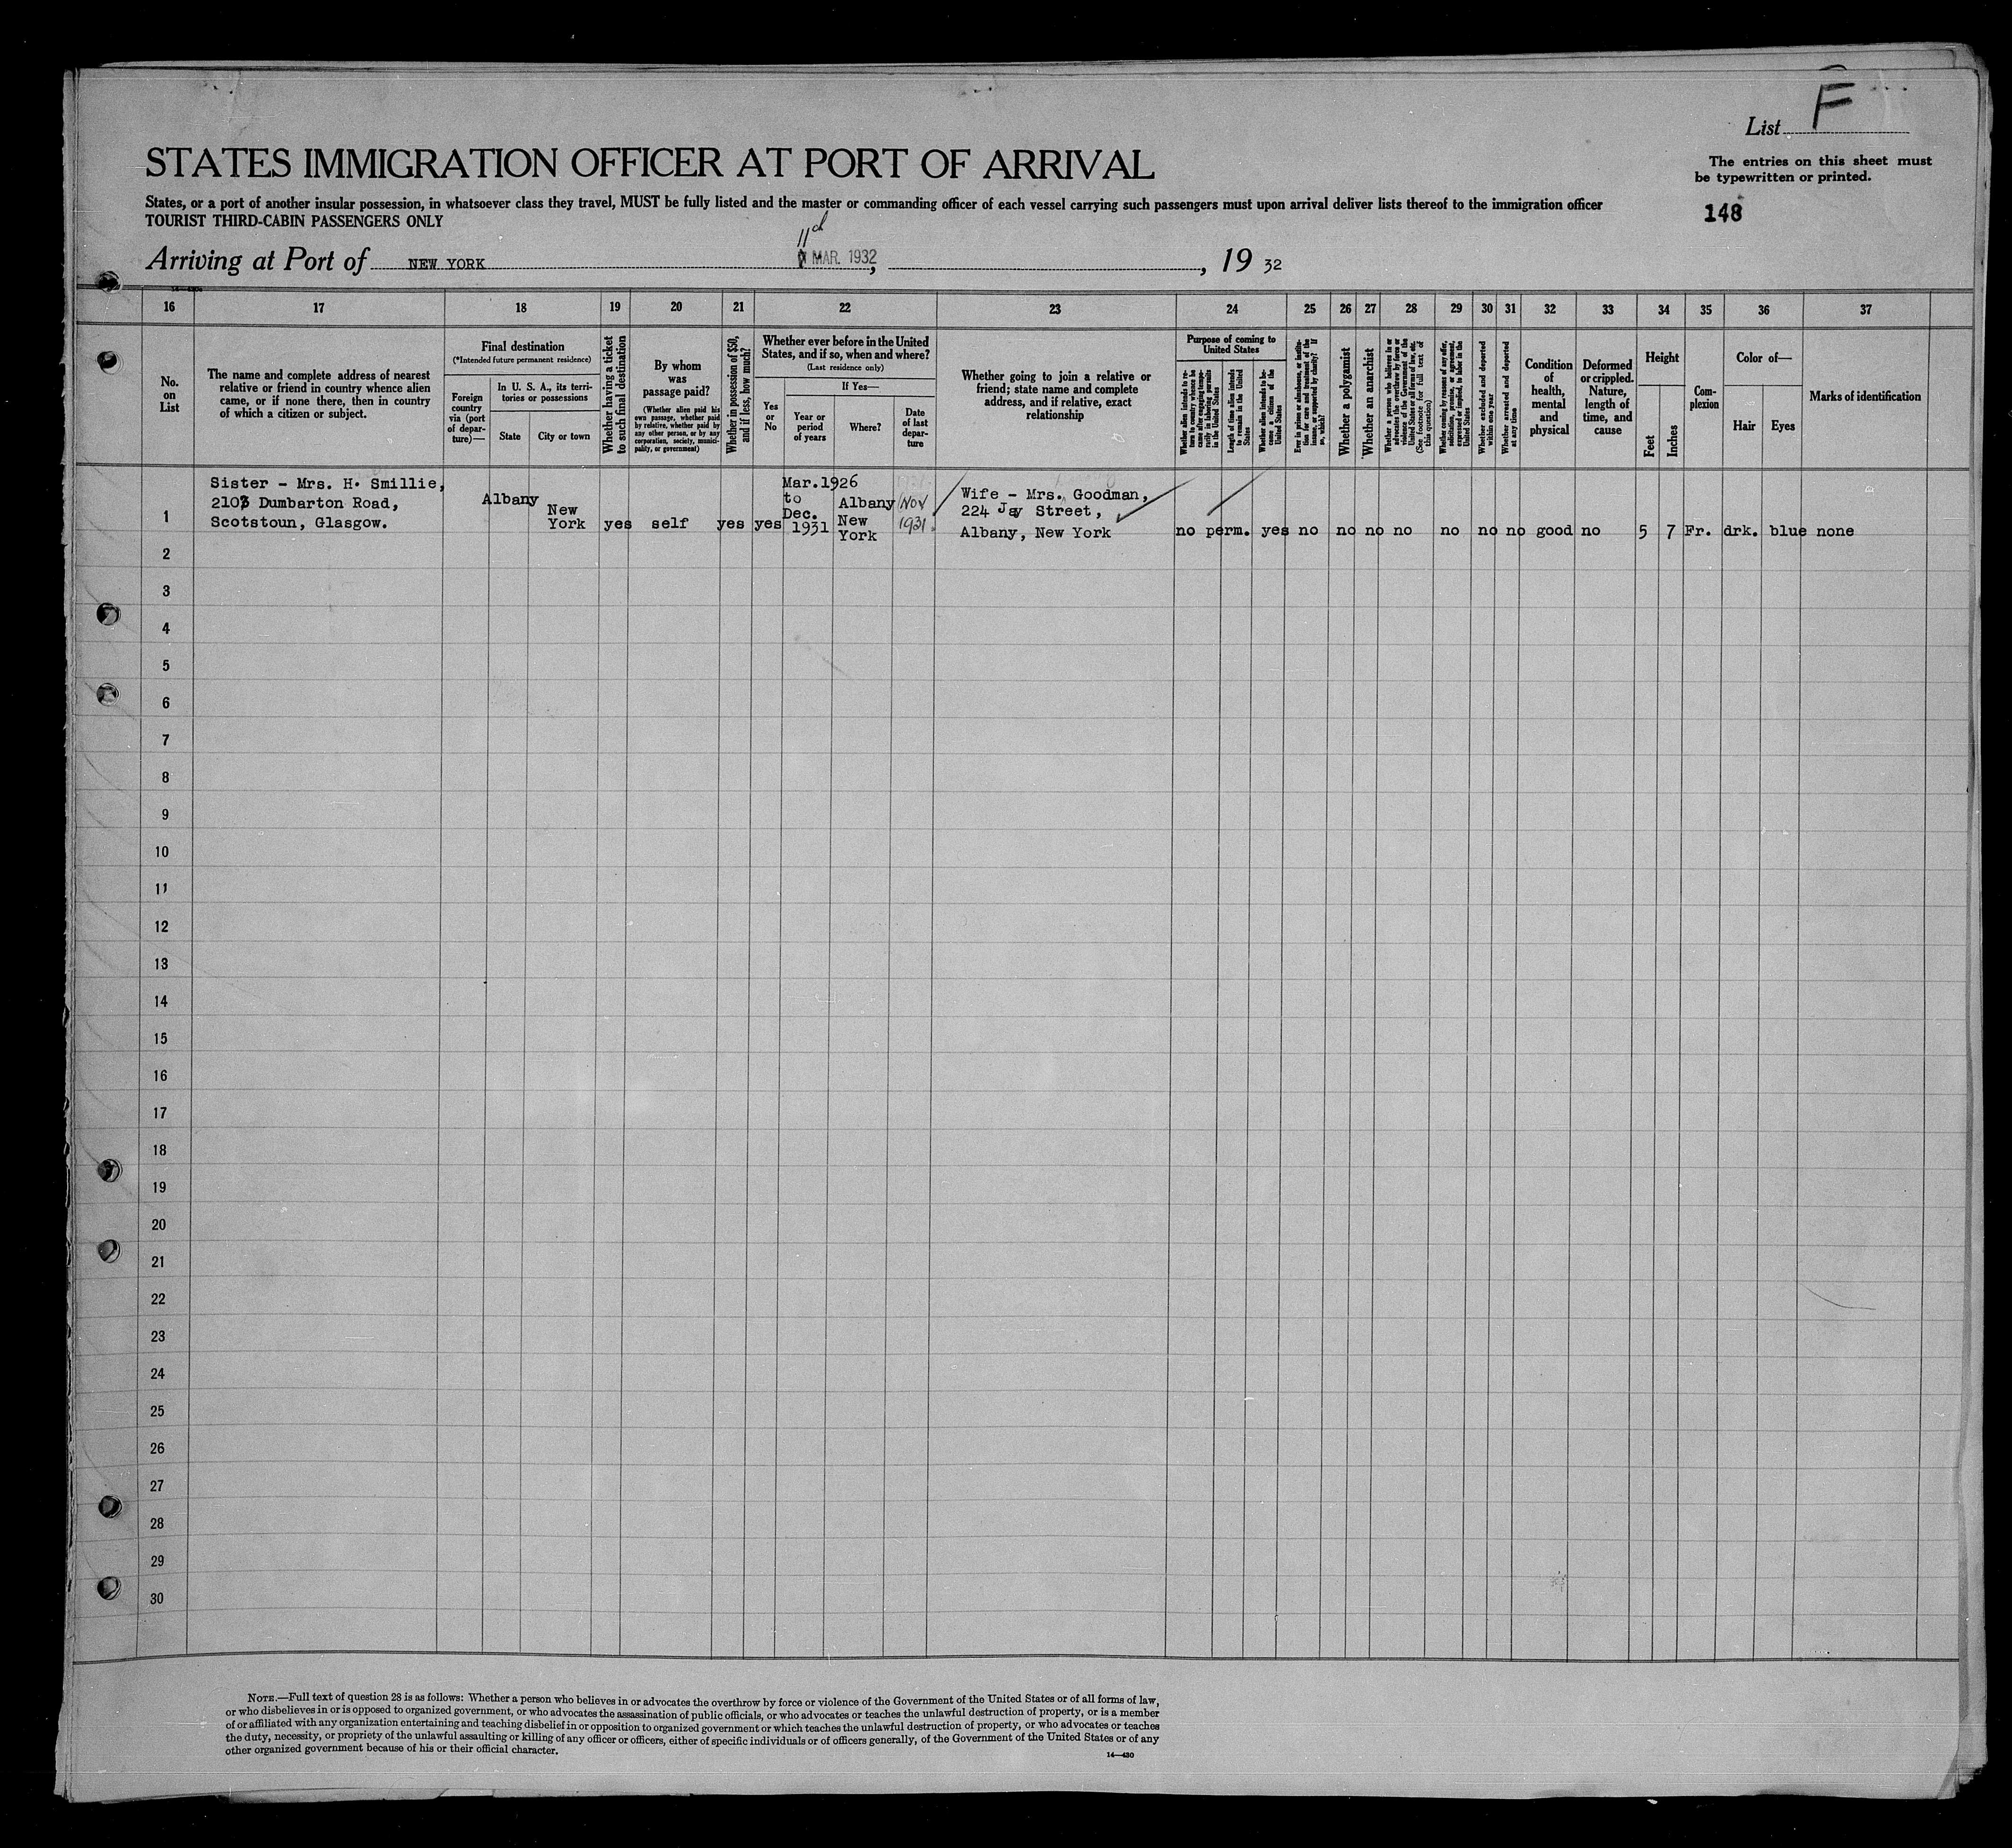 List F
STATES IMMIGRATION OFFICER AT PORT OF ARRIVAL
The entries on this sheet must
be typewritten or printed.
States, or a port of another insular possession, in whatsoever class they travel, MUST be fully listed and the master or commanding officer of each vessel carrying such passengers must upon arrival deliver lists thereof to the immigration officer
TOURIST THIRD-CABIN PASSENGERS ONLY
148
11d
Arriving at Port of NEW YORK MAR. 1932, , 19 32
16 17 18 19 20 21 22 23 24 25 26 27 28 29 30 31 32 33 34 35 36 37
No.
on
List
The name and complete address of nearest
relative or friend in country whence alien
came, or if none there, then in country
of which a citizen or subject.
Final destination
(*Intended future permanent residence)
Foreign
country
via (port
of depar-
ture)—
In U. S. A., its terri-
tories or possessions
State
City or town
Whether having a ticket
to such final destination
By whom
was
passage paid?
(Whether alien paid his
own passage, whether paid
by relative, whether paid by
any other person, or by any
corporation, society, munici-
pality, or government)
Whether in possession of $50,
and if less, how much?
Whether ever before in the United
States, and if so, when and where?
(Last residence only)
Yes
or
No
If Yes—
Year or
period
of years
Where?
Date
of last
depar-
ture
Whether going to join a relative or
friend; state name and complete
address, and if relative, exact
relationship
Purpose of coming to
United States
Whether alien intends to re-
turn to country whence he
came after engaging tempo-
rarily in laboring pursuits
in the United States
Length of time alien intends
to remain in the United
States
Whether alien intends to be-
come a citizen of the
United States
Ever in prison or almshouse, or institu-
tion for care and treatment of the
insane, or supported by charity? If
so, which?
Whether a polygamist
Whether an anarchist
Whether a person who believes in or
advocates the overthrow by force or
violence of the Government of the
United States or all forms of law, etc.
(See footnote for full text of
this question)
Whether coming by reason of any offer,
solicitation, promise, or agreement,
expressed or implied, to labor in the
United States
Whether excluded and deported
within one year
Whether arrested and deported
at any time
Condition
of
health,
mental
and
physical
Deformed
or crippled.
Nature,
length of
time, and
cause
Height
Feet
Inches
Com-
plexion
Color of—
Hair
Eyes
Marks of identification
1
Sister - Mrs. H. Smillie,
2103 Dumbarton Road,
Scotstoun, Glasgow.
Albany
New
York
yes
self
yes
yes
Mar.1926
to
Dec.
1931
Albany
New
York
Nov
1931.
Wife - Mrs. Goodman,
224 Jay Street,
Albany, New York
no perm. yes no no no no no no no good no 5 7 Fr. drk. blue none
2
3
4
5
6
7
8
9
10
11
12
13
14
15
16
17
18
19
20
21
22
23
24
25
26
27
28
29
30
NOTE.—Full text of question 28 is as follows: Whether a person who believes in or advocates the overthrow by force or violence of the Government of the United States or of all forms of law,
or who disbelieves in or is opposed to organized government, or who advocates the assassination of public officials, or who advocates or teaches the unlawful destruction of property, or is a member
of or affiliated with any organization entertaining and teaching disbelief in or opposition to organized government or which teaches the unlawful destruction of property, or who advocates or teaches
the duty, necessity, or propriety of the unlawful assaulting or killing of any officer or officers, either of specific individuals or of officers generally, of the Government of the United States or of any
other organized government because of his or their official character.
14—430